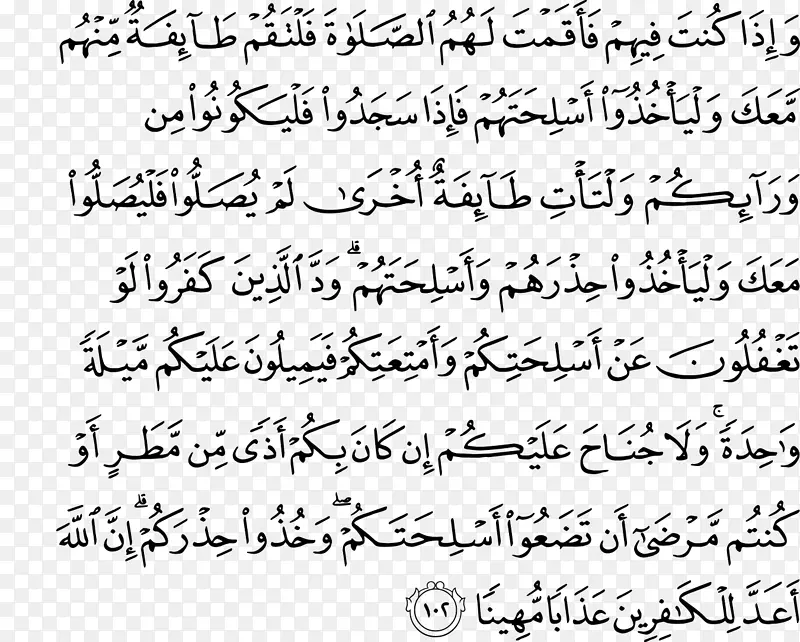 وَإِذَا كُنتَ فِيهِمۡ فَأَقَمۡتَ لَهُمُ ٱلصَّلَوٰةَ فَلۡتَقُمۡ طَآئِفَةٞ مِّنۡهُم
مَّعَكَ وَلۡيَأۡخُذُوٓاْ أَسۡلِحَتَهُمۡ فَإِذَا سَجَدُواْ فَلۡيَكُونُواْ مِن
وَرَآئِكُمۡ وَلۡتَأۡتِ طَآئِفَةٌ أُخۡرَىٰ لَمۡ يُصَلُّواْ فَلۡيُصَلُّواْ
مَعَكَ وَلۡيَأۡخُذُواْ حِذۡرَهُمۡ وَأَسۡلِحَتَهُمۡۗ وَدَّ ٱلَّذِينَ كَفَرُواْ لَوۡ
تَغۡفُلُونَ عَنۡ أَسۡلِحَتِكُمۡ وَأَمۡتِعَتِكُمۡ فَيَمِيلُونَ عَلَيۡكُم مَّيۡلَةٗ
وَٰحِدَةٗۚ وَلَا جُنَاحَ عَلَيۡكُمۡ إِن كَانَ بِكُمۡ أَذٗى مِّن مَّطَرٍ أَوۡ
كُنتُم مَّرۡضَىٰٓ أَن تَضَعُوٓاْ أَسۡلِحَتَكُمۡۖ وَخُذُواْ حِذۡرَكُمۡۗ إِنَّ ٱللَّهَ
أَعَدَّ لِلۡكَٰفِرِينَ عَذَابٗا مُّهِينٗا ١٠٢